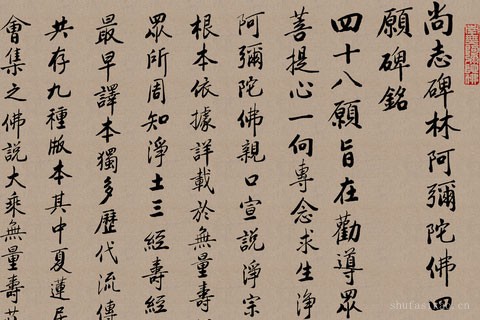 尚志碑林阿彌陀佛四
願碑銘
四十八願旨在勸導眾
菩提心一向專念求生淨
阿彌陀佛親口宣説淨宗
根本依據詳載於無量壽
眾所周知淨土三經壽經
最早譯本獨多歷代流傳
共存九種版本其中夏蓮居
會集之佛説大乘無量壽莊
shufa